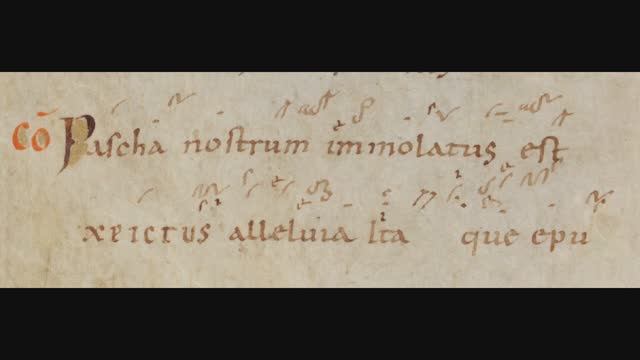 CŌ Pascha nostrum immolatus est
xpictus alleluia Ita que epu